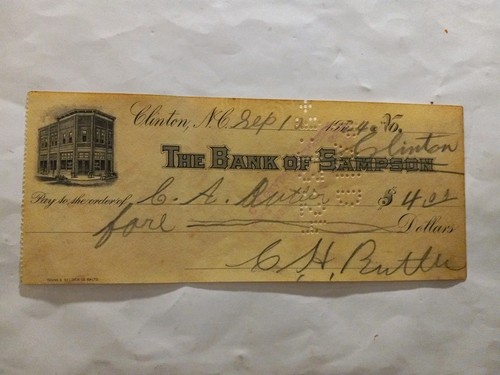 Clinton, N.C. Sep 12
Clinton
THE BANK OF SAMPSON
Pay to the order of C. A. Butler $4.00
fore Dollars
C. H. Butler